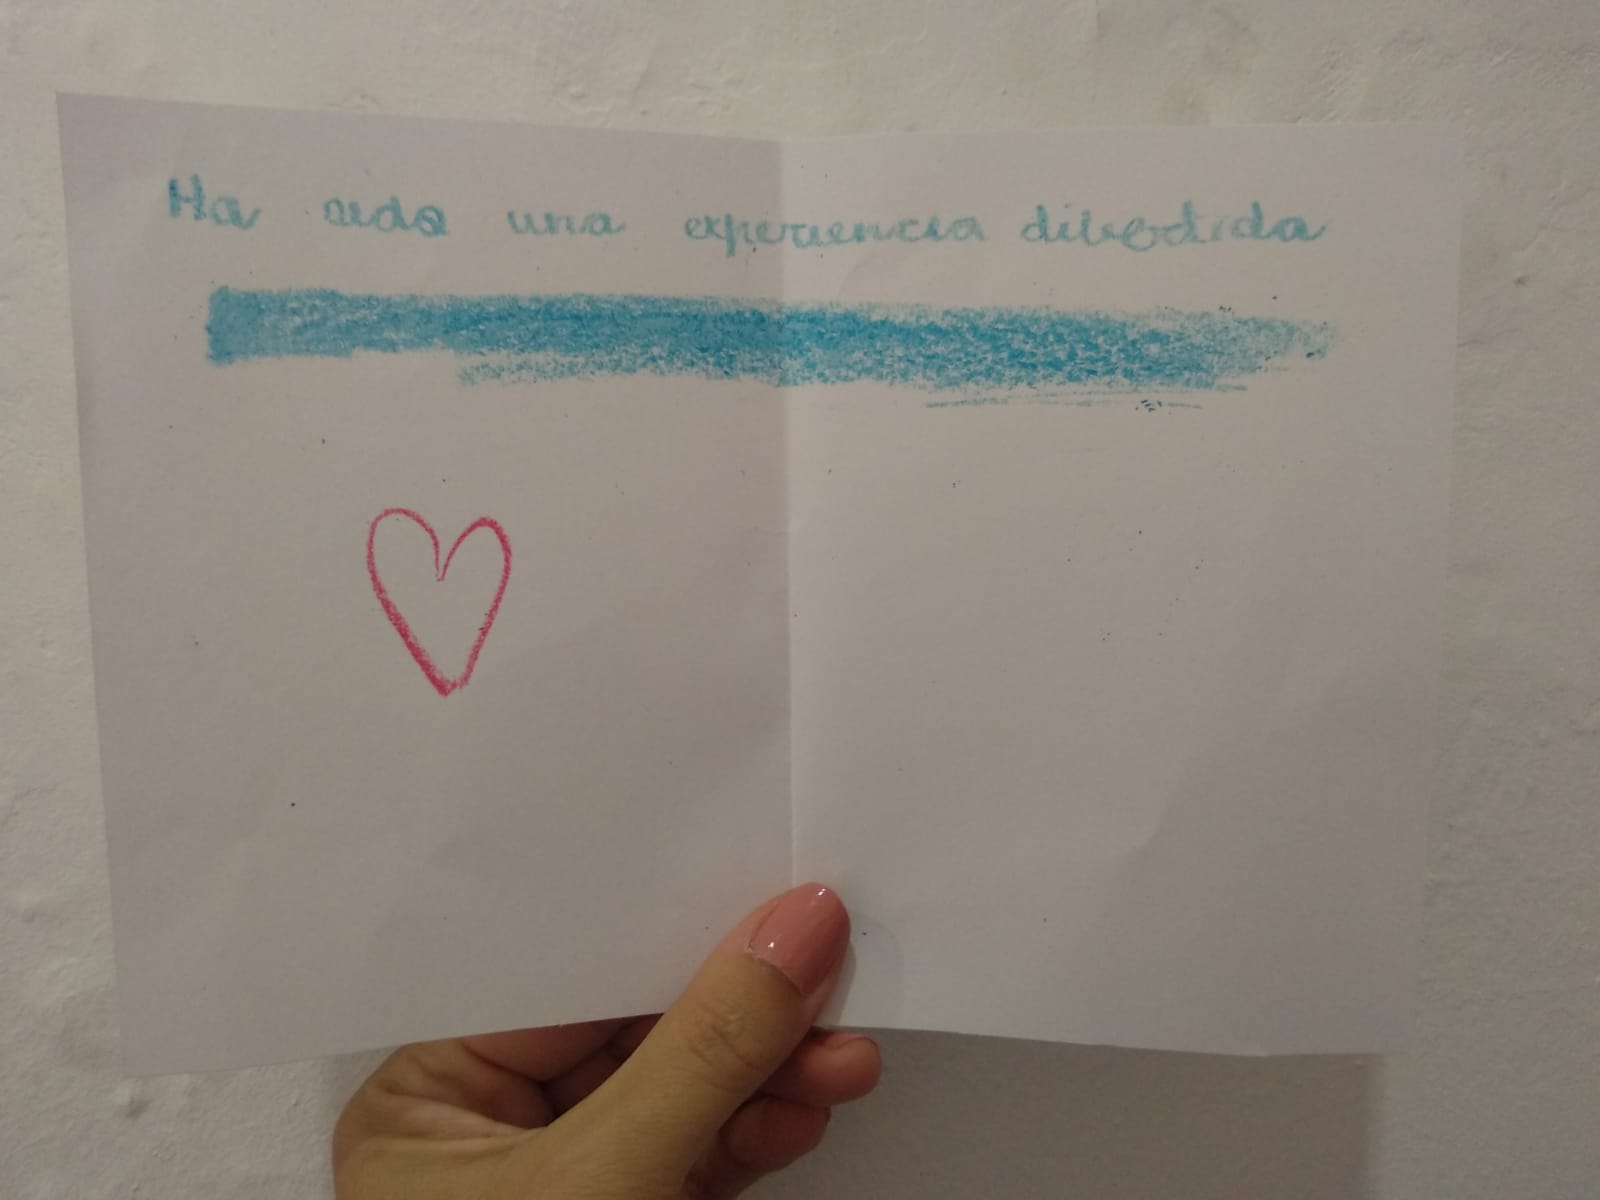 Ha sido una experiencia dibertida